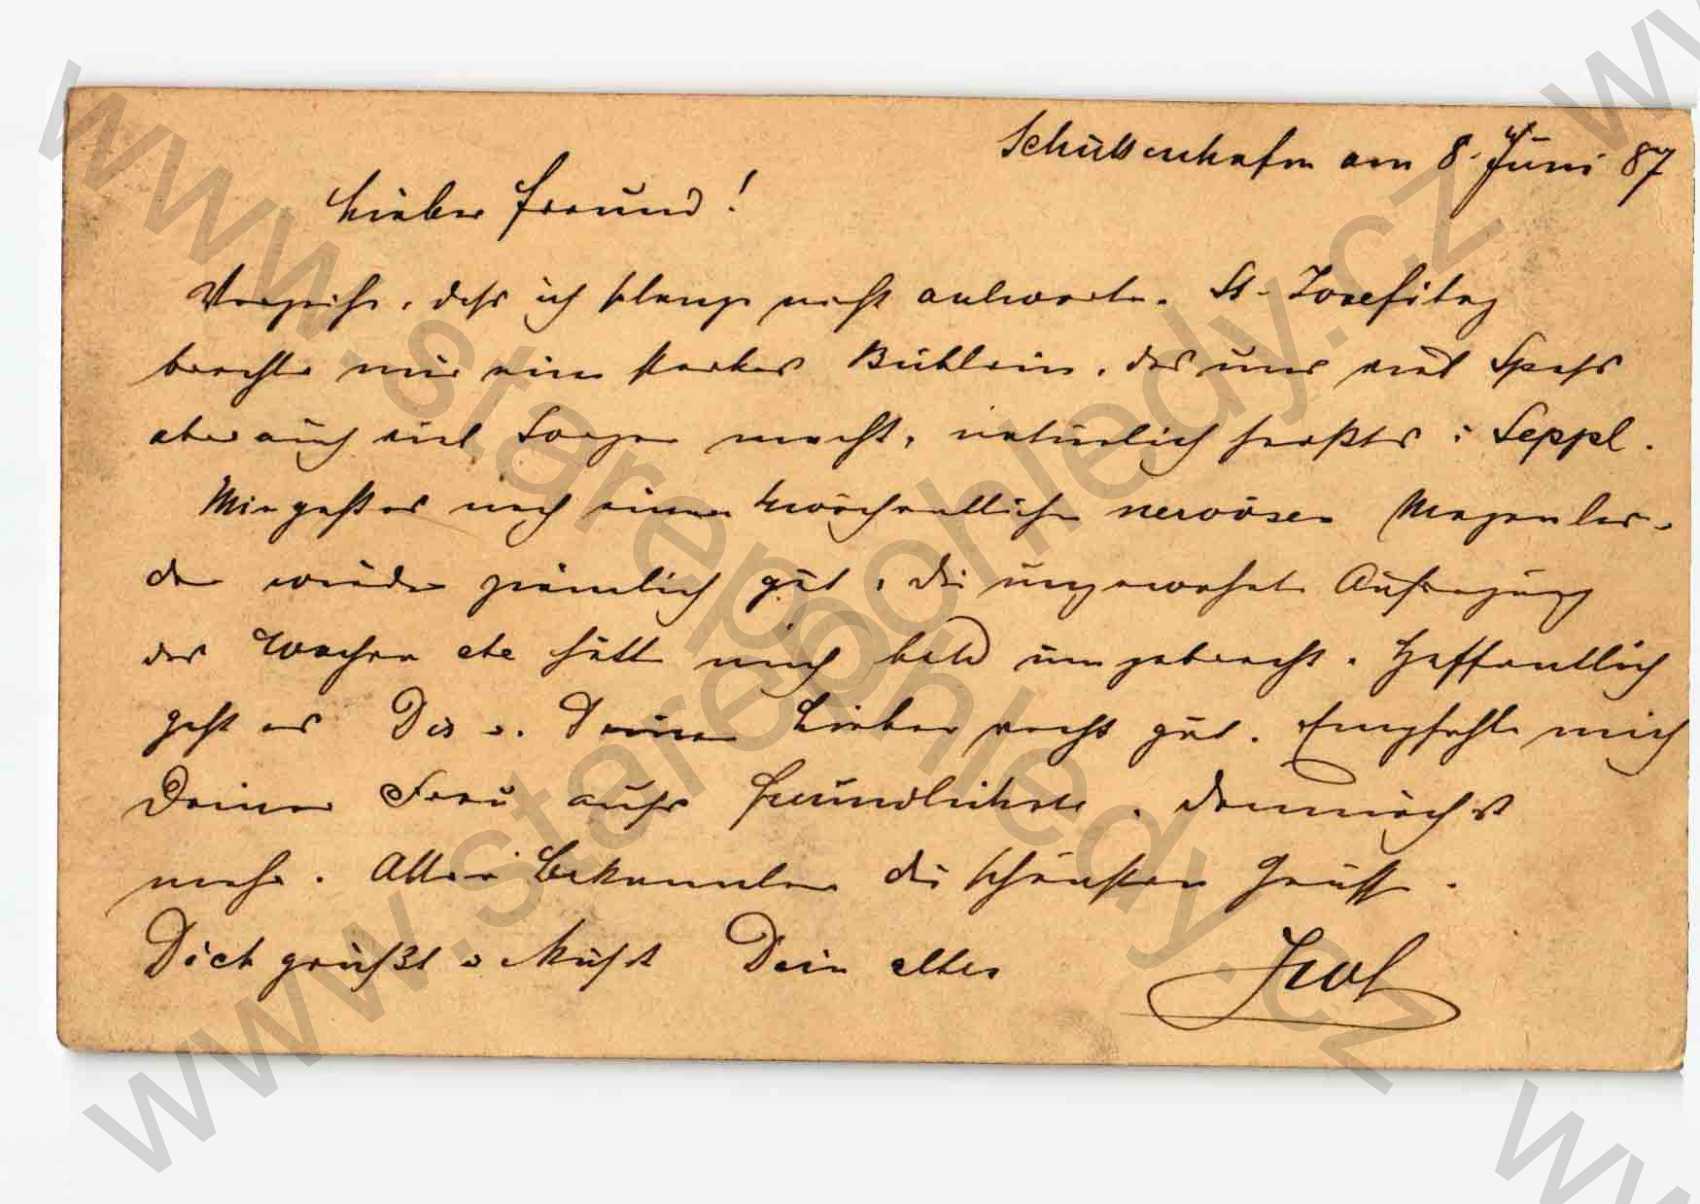 Schüttenhofen am 8. Juni 87
Lieber Freund!
Verzeihe, dass ich solange nicht antworte. St. Josefitag
brachte mir einen starken Büblein, das uns viel Spass
aber auch viel Sorgen macht, natürlich heißt er: Seppl.
Mir geht es nach einem wöchentlichen nervösen Magenlei-
den wieder ziemlich gut, die ungewohnte Aufregung
des Wachen etc hätte mich bald umgebracht. Hoffentlich
geht es Dir u. Deinen Lieben recht gut. Empfehle mich
Deiner Frau aufs freundlichste. Demnächst
mehr. Allen Bekannten die schönsten Grüsse.
Dich grüßt u. küßt Dein alter
www.starepohledy.cz
www.starepohledy.cz